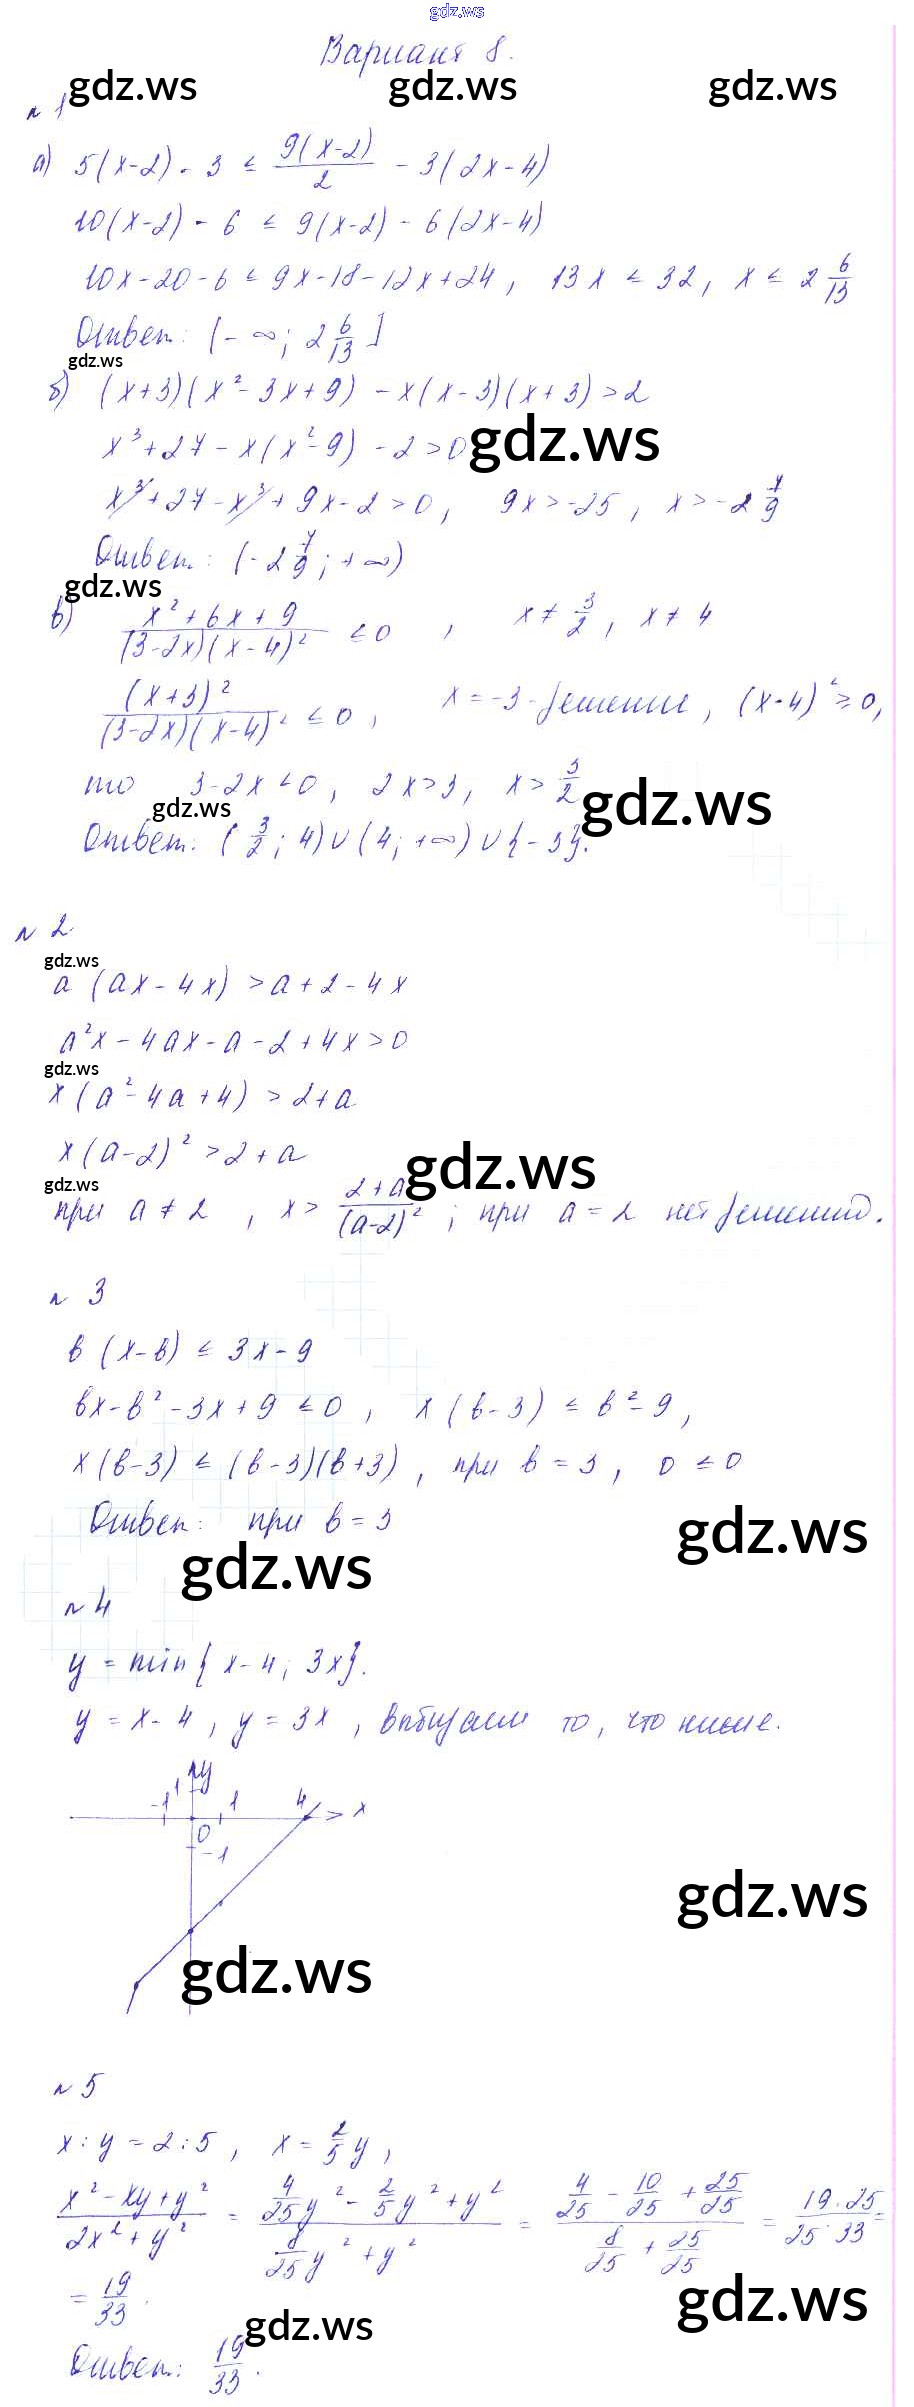 gdz.ws
Вариант 8.
gdz.ws gdz.ws gdz.ws
№ 1
а) 5(x-2) - 3 ≤ 9(x-2)/2 - 3(2x-4)
10(x-2) - 6 ≤ 9(x-2) - 6(2x-4)
10x-20-6 ≤ 9x-18-12x+24, 13x ≤ 32, x ≤ 2 6/13
Ответ: (-∞; 2 6/13]
gdz.ws
б) (x+3)(x²-3x+9) - x(x-3)(x+3) > 2
x³+27 - x(x²-9) - 2 > 0
gdz.ws
x³+27-x³+9x-2 > 0, 9x > -25, x > -2 7/9
Ответ: (-2 7/9; +∞)
gdz.ws
в) x²+6x+9/(3-2x)(x-4)² ≤ 0, x ≠ 3/2, x ≠ 4
(x+3)²/(3-2x)(x-4)² ≤ 0, x = -3 - решение, (x-4)² ≥ 0,
то 3-2x < 0, 2x > 3, x > 3/2
gdz.ws gdz.ws
Ответ: (3/2; 4) ∪ (4; +∞) ∪ {-3}.
№ 2
gdz.ws
a (ax - 4x) > a + 2 - 4x
a²x - 4ax - a - 2 + 4x > 0
gdz.ws
x (a² - 4a + 4) > 2 + a
x (a-2)² > 2 + a
gdz.ws
gdz.ws
при a ≠ 2, x > 2+a/(a-2)²; при a = 2 нет решений.
№ 3
в (x-в) ≤ 3x - 9
вx - в² - 3x + 9 ≤ 0, x (в-3) ≤ в² - 9,
x (в-3) ≤ (в-3)(в+3), при в = 3, 0 ≤ 0
Ответ: при в = 3
gdz.ws
gdz.ws
№ 4
y = min{x-4; 3x}.
y = x-4, y = 3x, выбираем то, что ниже.
1 y
-1 1 4 x
0
-1
gdz.ws
gdz.ws
№ 5
x : y = 2 : 5, x = 2/5 y,
x²-xy+y²/2x²+y² = 4/25 y² - 2/5 y² + y²/8/25 y² + y² = 4/25 - 10/25 + 25/25/8/25 + 25/25 = 19·25/25·33 =
= 19/33.
gdz.ws
gdz.ws
Ответ: 19/33.